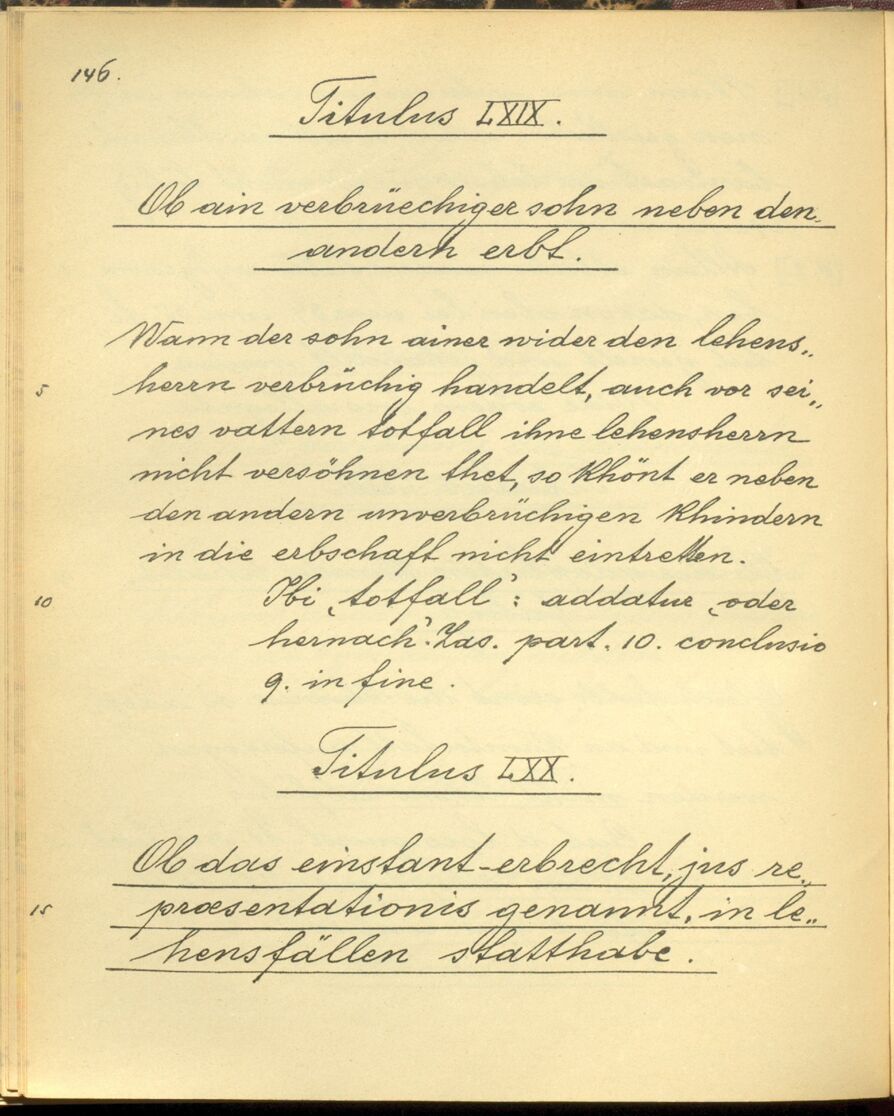 146.
Titulus LXIX.
Ob ain verbrüechiger sohn neben den
andern erbt.
Wann der sohn ainer wider den lehens„
5 herrn verbrüchig handelt, auch vor sei„
nes vattern totfall ihne lehensherrn
nicht versöhnen thet, so khönt er neben
den andern unverbrüchigen khindern
in die erbschaft nicht eintretten.
10 Ibi ‚totfall’: addatur ‚oder
hernach’. Zas. part. 10. conclusio
9. in fine.
Titulus LXX.
Ob das einstant-erbrecht, jus re„
15 præsentationis genannt, in le„
hensfällen statthabe.